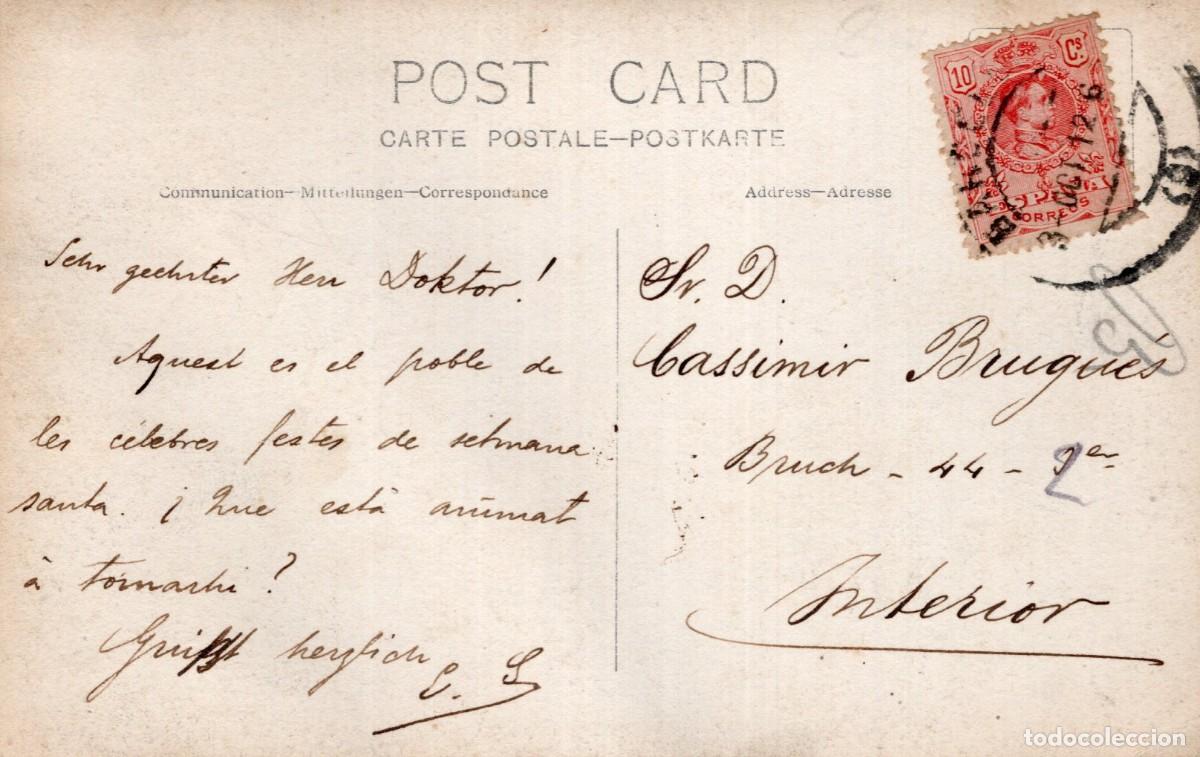 POST CARD
CARTE POSTALE—POSTKARTE
Communication—Mitteilungen—Correspondance
Address—Adresse
10 Cs
ESPAÑA
CORREOS
OCT 12
Sehr geehrter Herr Doktor!
Aquest es el poble de
les célebres festes de setmana
santa. ¡ Que está animat
à tornarhi?
Grüsst herzlich
E. S
Sr. D.
Cassimir Brugués
Bruch - 44 - 2
Interior
5
todocoleccion